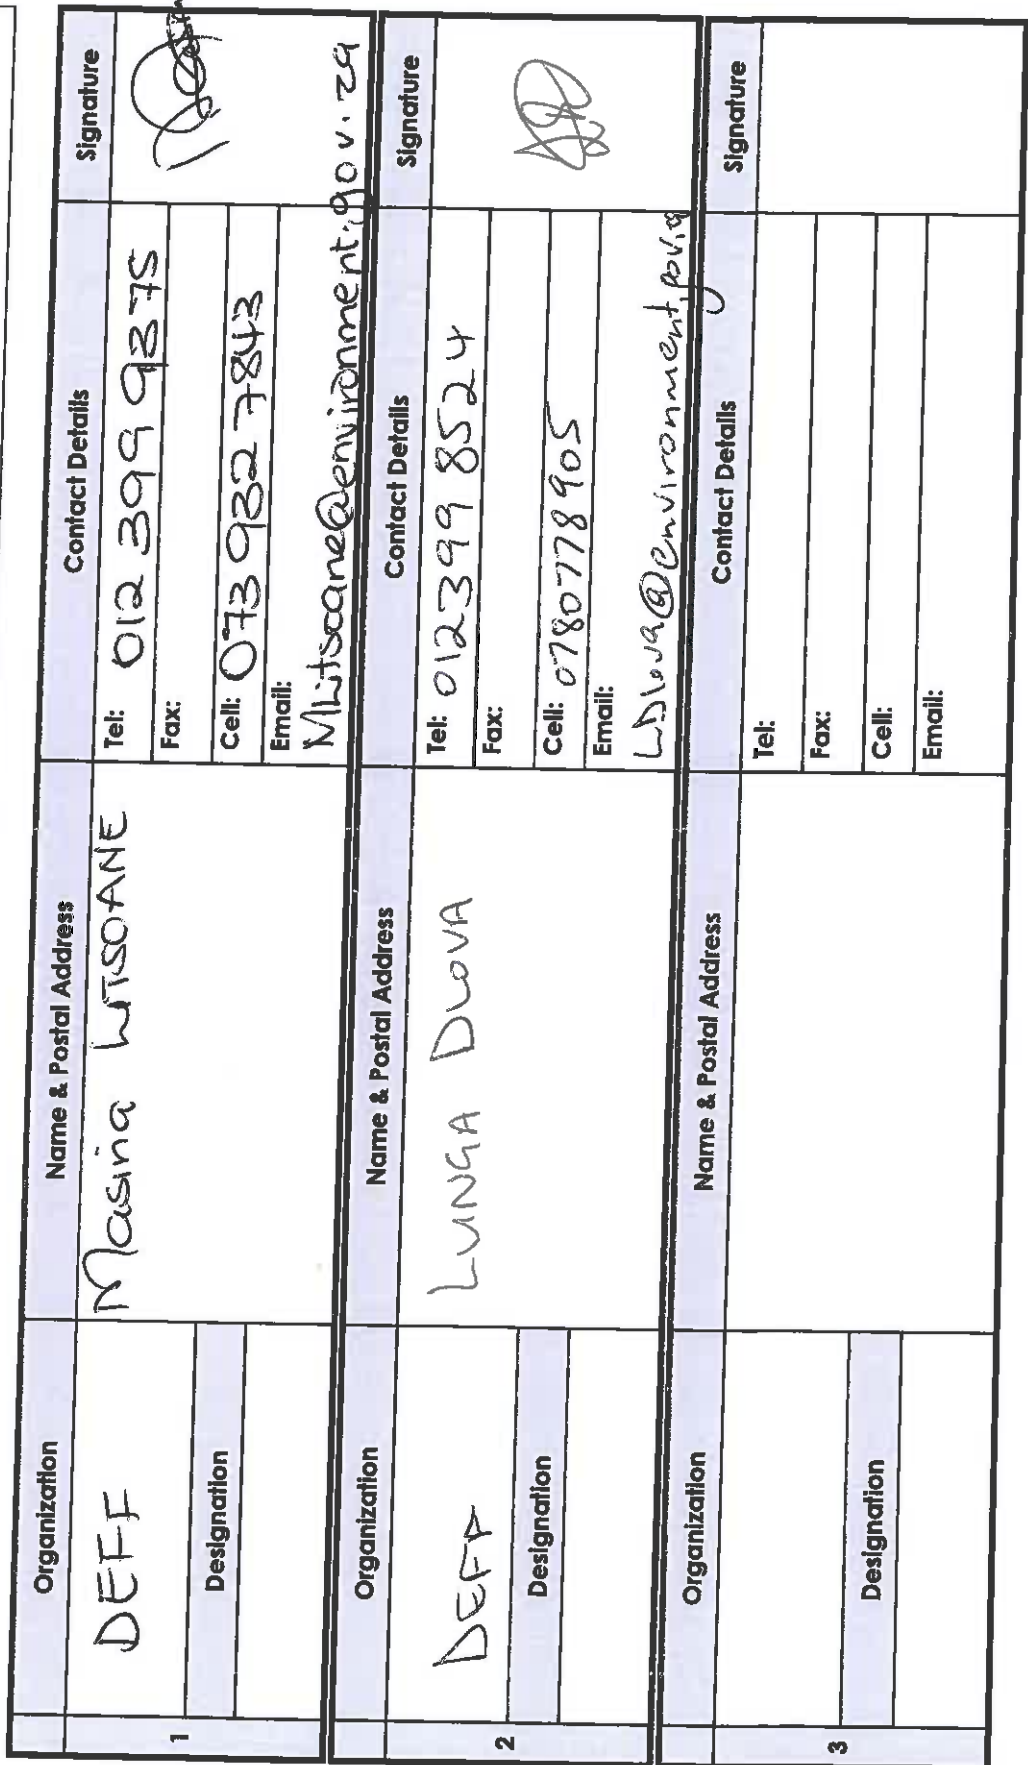 Organization Name & Postal Address Contact Details Signature
1 DEFF Masina LITSOANE Tel: 012 399 9375
Fax:
Designation Cell: 073 932 7843
Email:
MLitsoane@environment.gov.za
Organization Name & Postal Address Contact Details Signature
2 DEFF LUNGA DLOVA Tel: 012399 8524
Fax:
Designation Cell: 0780778905
Email:
LDlova@environment.gov.za
Organization Name & Postal Address Contact Details Signature
3 Tel:
Fax:
Designation Cell:
Email: